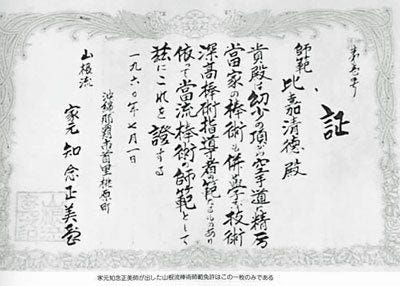 第壱号
証
師範 比嘉清徳殿
貴殿は幼少の頃から空手道に精励
當家の棒術も併学せ技術
深高棒術指導者の範たるものあり
依って當流棒術の師範として
茲にこれを證する
一九六〇年七月一日
沖縄那覇市首里桃原町
山根流
家元 知念正美
家元知念正美師が出した山根流棒術師範免許はこの一枚のみである